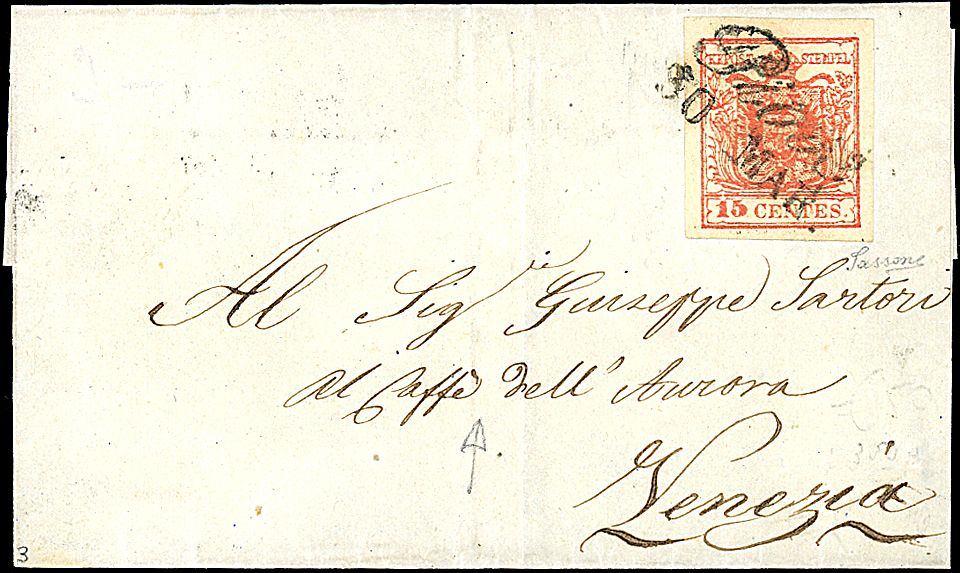 KKPOST STEMPEL
30
MAR.
15 CENTES.
Sassone
Al Sig.r Giuseppe Sartori
al Caffè dell' Aurora
Venezia
3